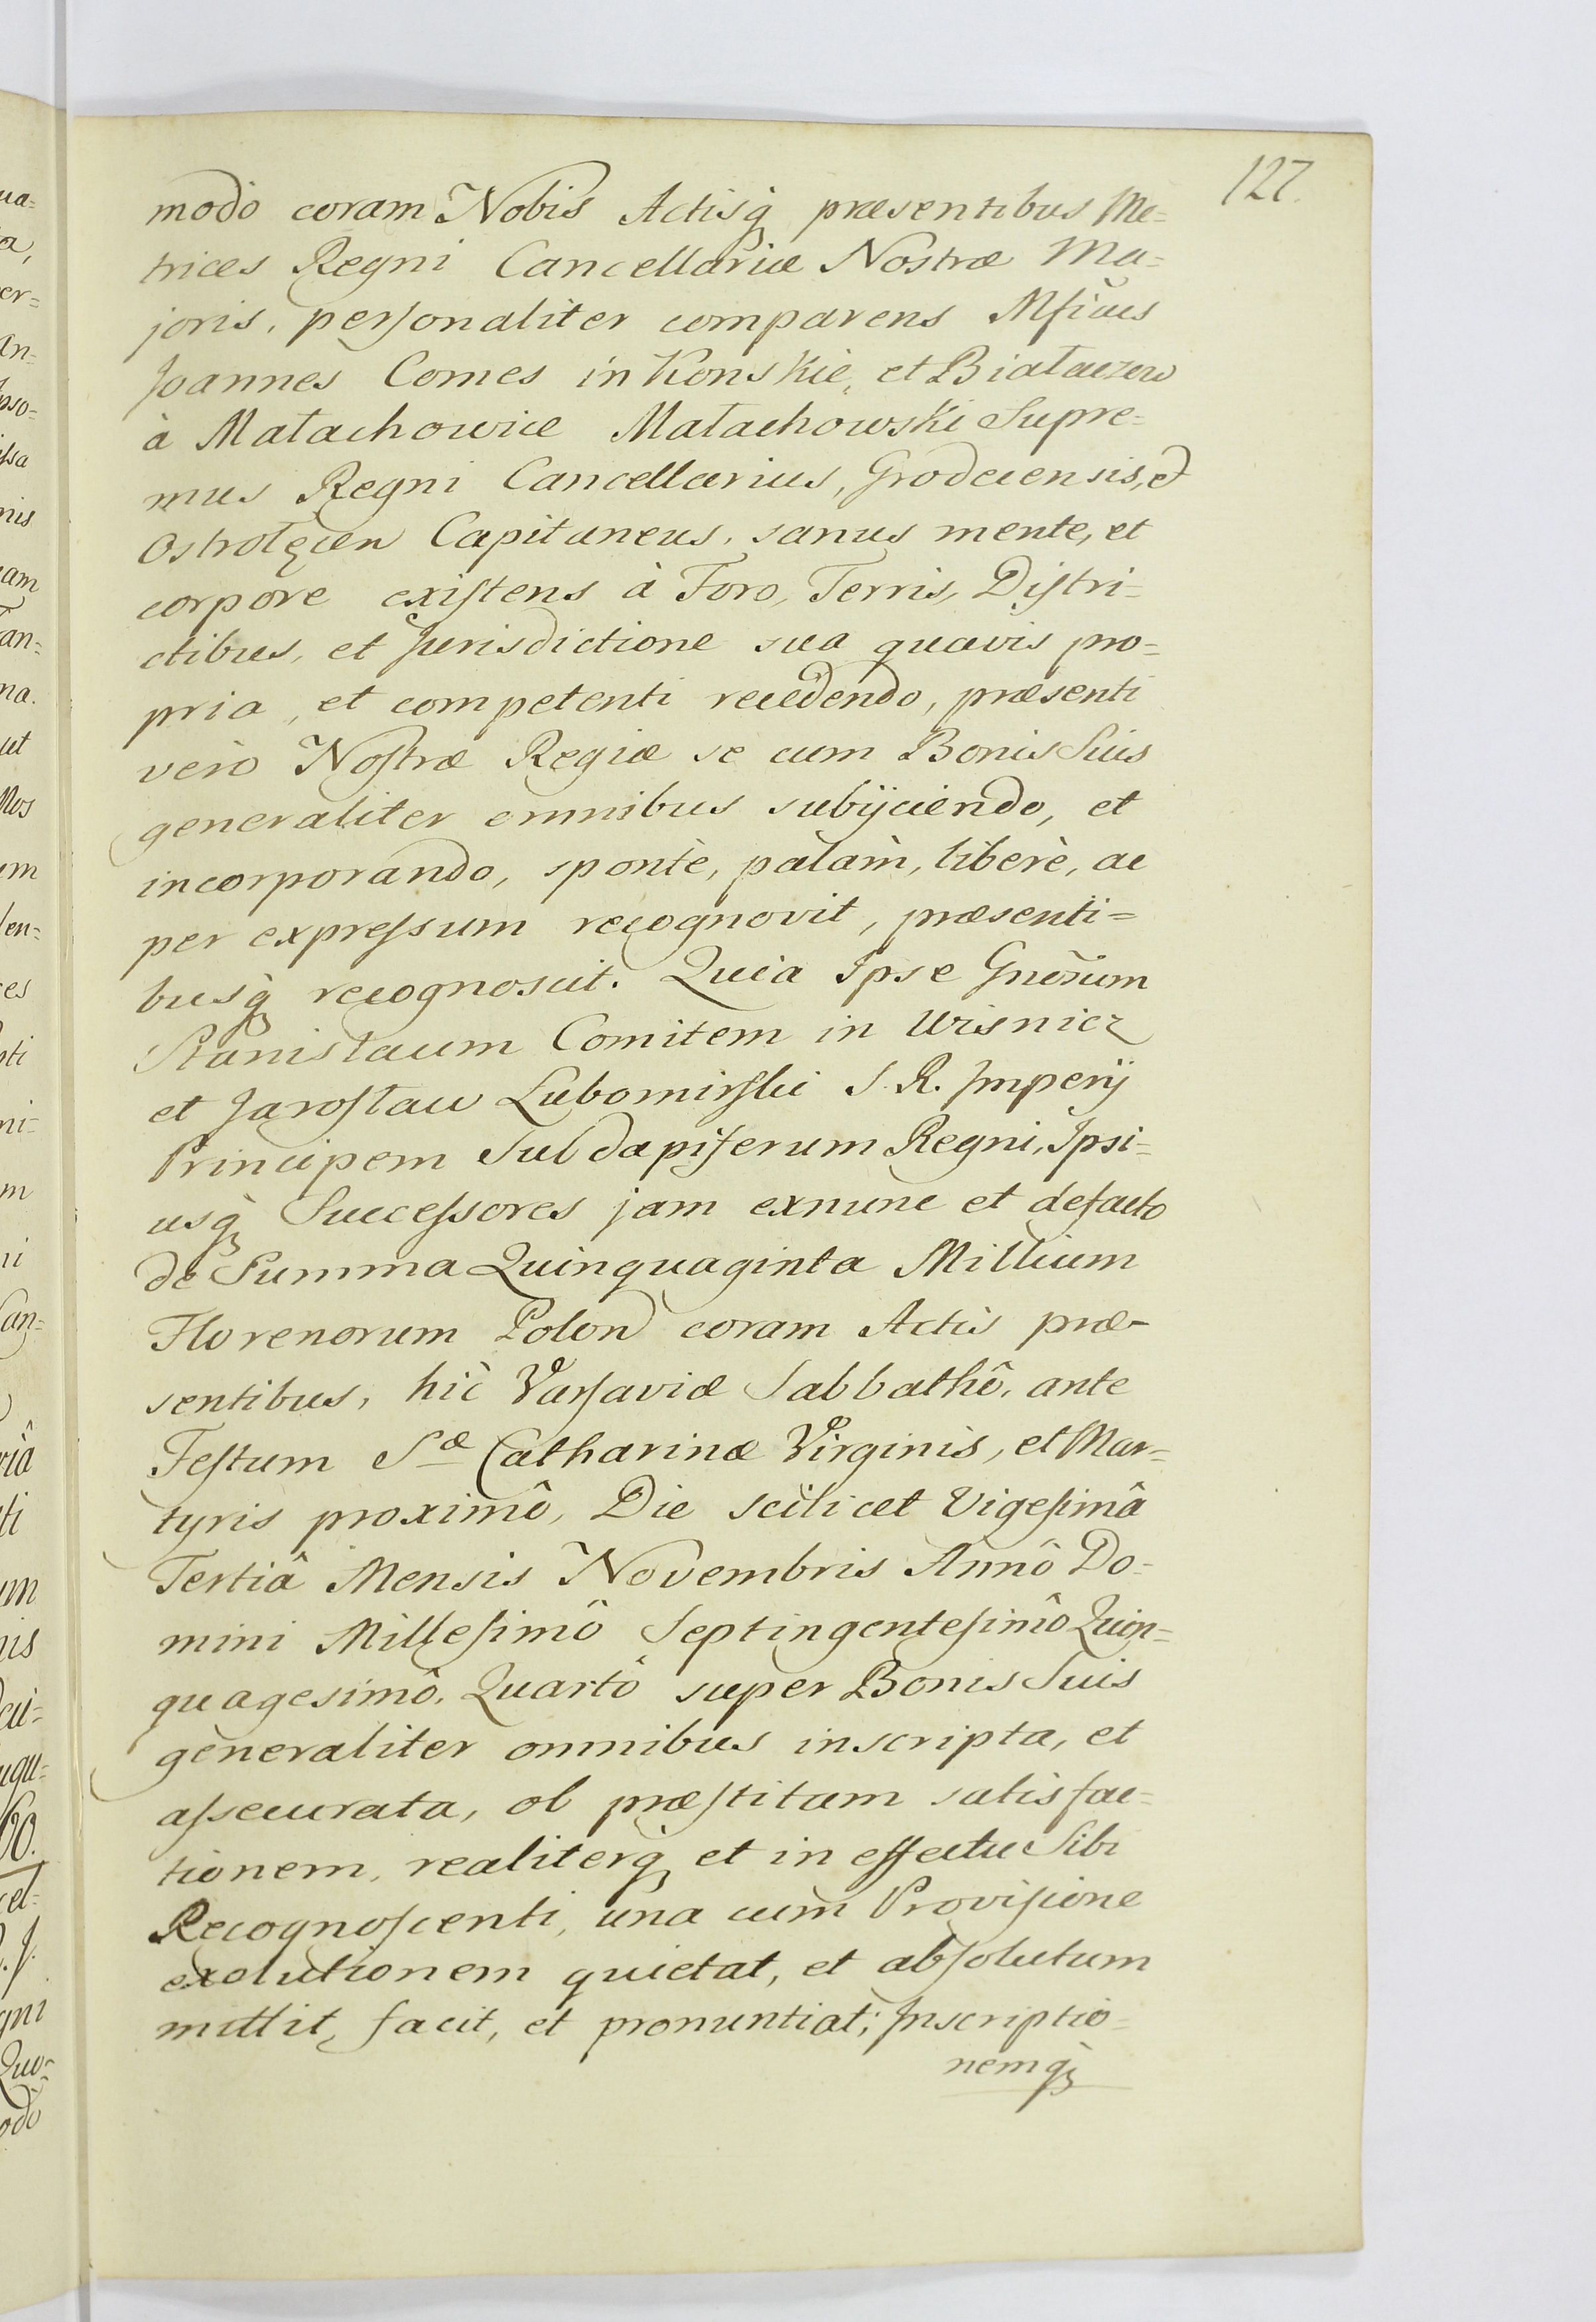 127.
modo coram Nobis Actisq̀ præsentibus Me=
trices Regni Cancellariæ Nostræ Ma=
joris, perſonaliter comparens Mſicus
Joannes Comes in Konskie, et Białaczow
à Małachowice Małachowski Supre=
mus Regni Cancellarius, Grodecensis, et
Ostrołęcen Capitaneus, sanus mente, et
corpore exiſtens à Foro, Terris, Diſtri=
ctibus, et Jurisdictione sua quavis pro=
pria, et competenti recedendo, præsenti
verò Noſtræ Regiæ se cum Bonis Suis
generaliter omnibus subijciendo, et
incorporando, spontè, palàm, liberè, ac
per expreſsum recognovit, præsenti=
busq̀ recognoscit. Quia Ipse Gnõsum
Stanisłaum Comitem in Wisnicz
et Jaroſław Lubomirſki S. R. Imperij
Principem Subdapiferum Regni, Ipsi=
usq̀ Succeſsores jam exnunc et defacto
de Summa Quinquaginta Millium
Florenorum Polon coram Actis præ=
sentibus, hìc Varſaviæ Sabbathô, ante
Feſtum Sæ Catharinæ Virginis, et Mar=
tyris proximô, Die scilicet Vigeſimâ
Tertiâ Mensis Novembris Annô Do=
mini Milleſimô Septingenteſimô Quin=
quagesimô, Quartô super Bonis Suis
generaliter omnibus inscripta, et
aſsecurata, ob præſtitam satisfac=
tionem, realiterq̀ et in effectu Sibi
Recognoſcenti, una cum Proviſione
exolutionem quietat, et abſolutum
mittit, facit, et pronuntiat; Inscriptio=
nemq̀